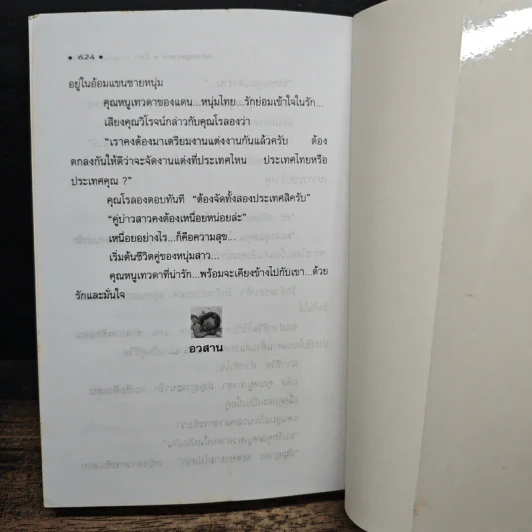 • 624 •
อยู่ในอ้อมแขนชายหนุ่ม
คุณหนูเทวดาของแดน...หนุ่มไทย...รักย่อมเข้าใจในรัก...
เสียงคุณวิโรจน์กล่าวกับคุณโรลองว่า
“เราคงต้องมาเตรียมงานแต่งงานกันแล้วครับ ต้อง
ตกลงกันให้ดีว่าจะจัดงานแต่งที่ประเทศไหน ประเทศไทยหรือ
ประเทศคุณ ?”
คุณโรลองตอบทันที “ต้องจัดทั้งสองประเทศสิครับ”
“คู่บ่าวสาวคงต้องเหนื่อยหน่อยล่ะ”
เหนื่อยอย่างไร...ก็คือความสุข...
เริ่มต้นชีวิตคู่ของหนุ่มสาว...
คุณหนูเทวดาที่น่ารัก...พร้อมจะเคียงข้างไปกับเขา...ด้วย
รักและมั่นใจ
อวสาน